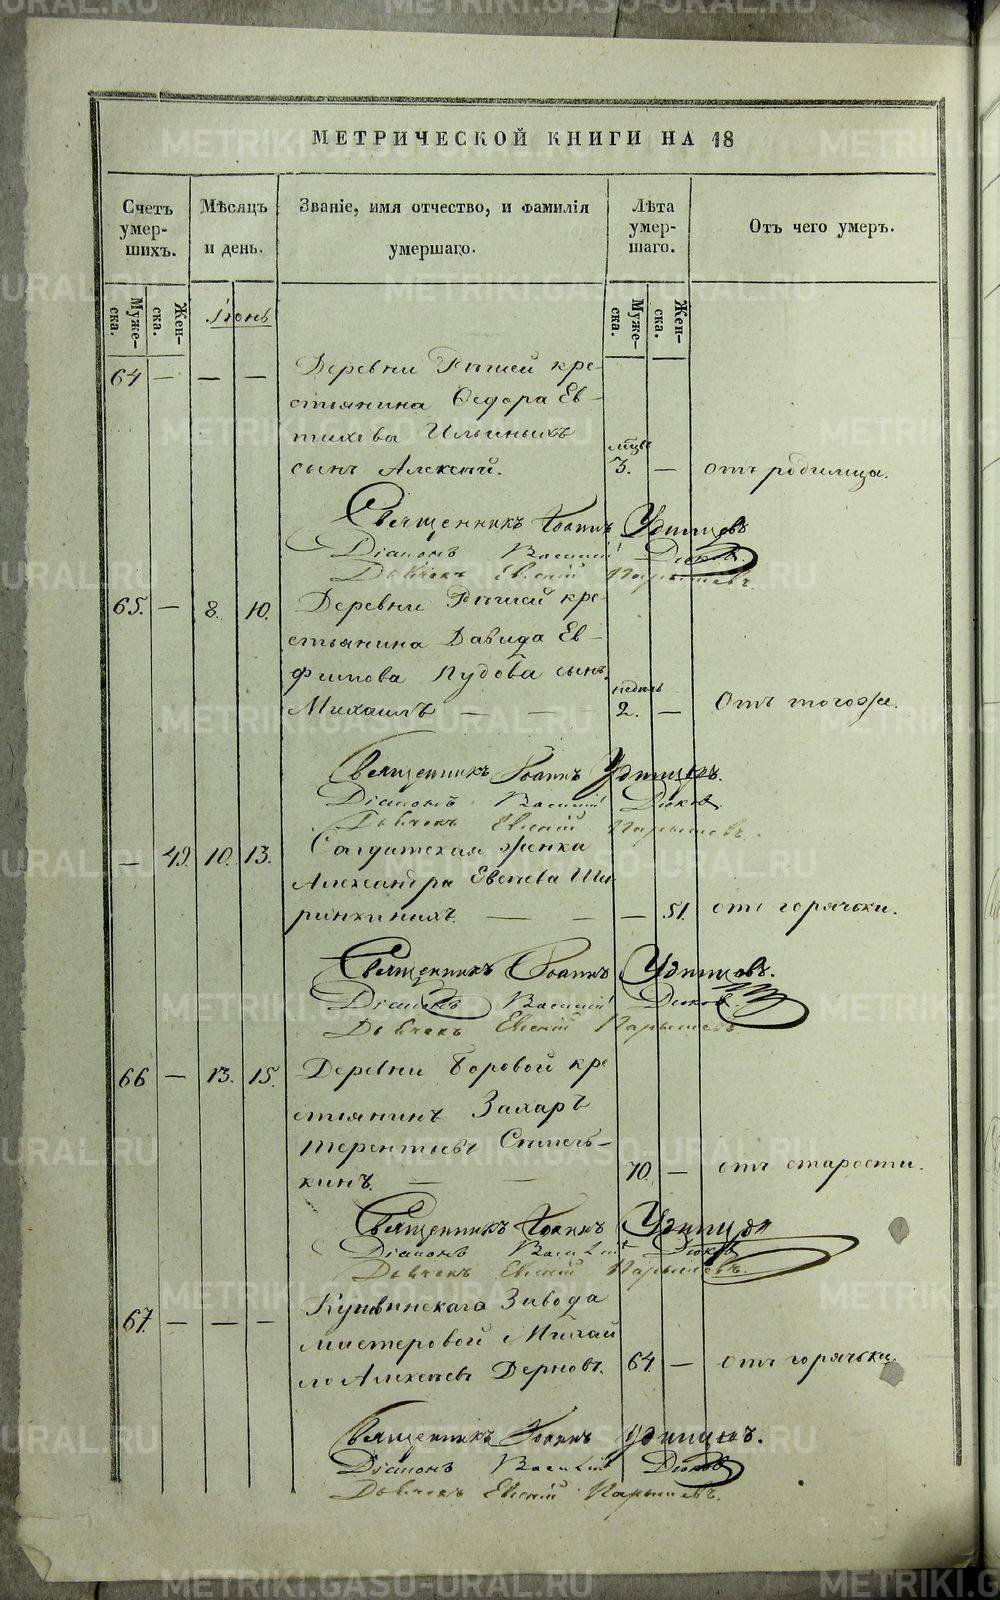 МЕТРИЧЕСКОЙ КНИГИ НА 18
Счетъ умершихъ. Мѣсяцъ и день. Званіе, имя отчество, и фамилія умершаго. Лѣта умершаго. Отъ чего умеръ.
Мужеска. Женска. Іюнь Мужеска. Женска.
64 — — — Деревни кре-
стьянина Ѳедора Ев-
тихѣева Ильиныхъ мцъ
сынъ Алексѣй. 3. — отъ родимца.
Священникъ Іоаннъ Удинцевъ
Діаконъ Василій Дюковъ.
Дьячекъ Евгеній Парышевъ.
65. — 8. 10. Деревни кре-
стьянина Давида Ев-
фимова Пудова сынъ недѣль
Михаилъ — — 2. — Отъ тогоже.
Священникъ Іоаннъ Удинцевъ.
Діаконъ Василій Дюковъ.
Дьячекъ Евгеній Парышевъ.
— 49. 10. 13. Солдатская женка
Александра Евсѣева Ши-
ринкиныхъ. — — — 51. отъ горячьки.
Священникъ Іоаннъ Удинцовъ.
Діаконъ Василій Дюковъ.
Дьячекъ Евгеній Парышевъ.
66 — 13. 15. Деревни Боровой кре
стьянинъ Захаръ
Терентьевъ
кинъ. — — 70. — отъ старости.
Священникъ Іоаннъ Удинцовъ
Діаконъ Василій Дюковъ
Дьячекъ Евгеній Парышевъ.
67. — — — Кушвинскаго Завода
мастеровой Михай
ло Алексѣевъ Дерновъ. 64. — отъ горячьки.
Священникъ Іоаннъ Удинцевъ.
Діаконъ Василій Дюковъ
Дьячекъ Евгеній Парышевъ.
METRIKI.GASO-URAL.RU